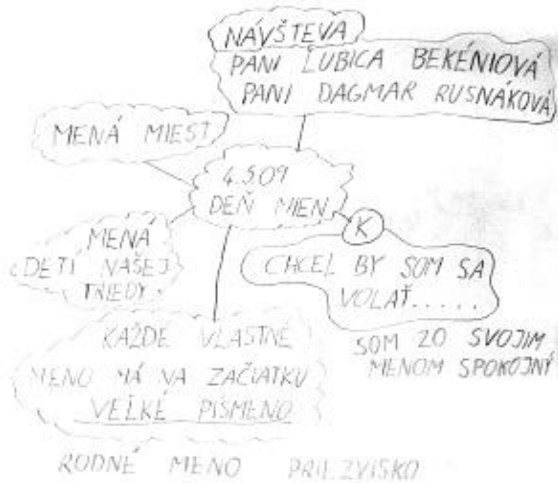 NÁVŠTEVA
PANI ĽUBICA BEKÉNIOVÁ
PANI DAGMAR RUSNÁKOVÁ
MENÁ MIEST
4.5.09
DEŇ MIEN
MENÁ
DETÍ NAŠEJ
TRIEDY
K
CHCEL BY SOM SA
VOLAŤ.....
SOM ZO SVOJIM
MENOM SPOKOJNÝ
KAŽDÉ VLASTNÉ
MENO MÁ NA ZAČIATKU
VEĽKÉ PÍSMENO
RODNÉ MENO PRIEZVISKO